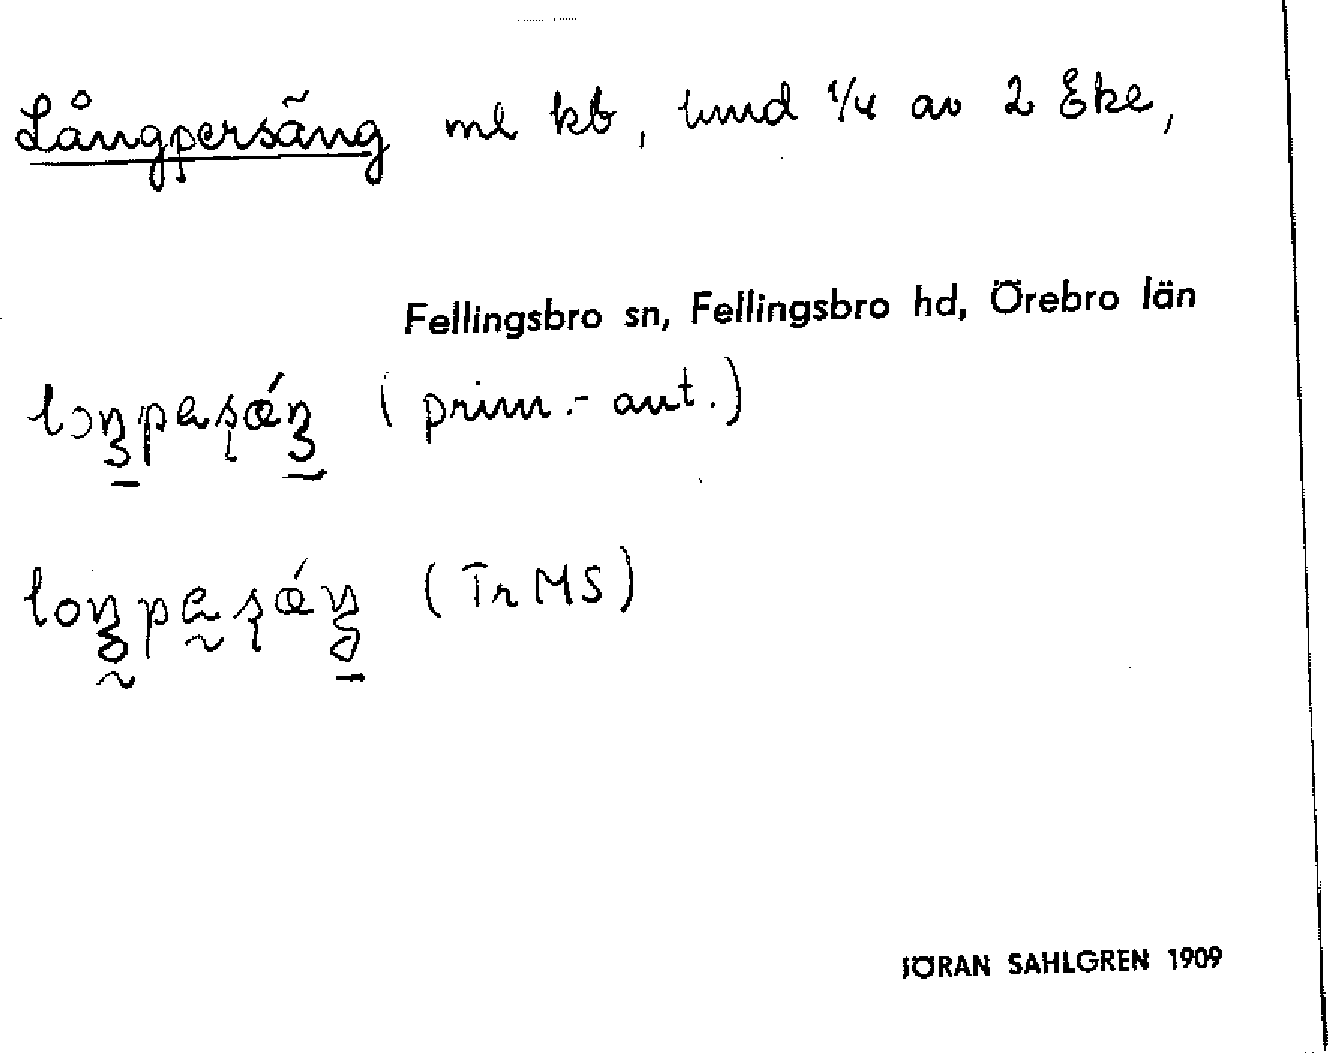 Långpersäng ml kb, lund 1/4 av 2 Eke,
Fellingsbro sn, Fellingsbro hd, Örebro län
(prim.- ant.)
(Tr MS)
JÖRAN SAHLGREN 1909